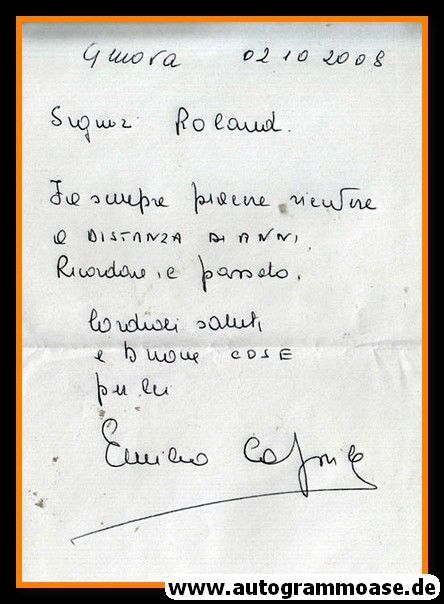 Genova 02 10 2008
Signor Roland.
Fa sempre piacere sentire
a DISTANZA DI ANNI,
Ricordare, il passato.
Cordiali saluti
e buone COSE
per lei
Emilio
www.autogrammoase.de